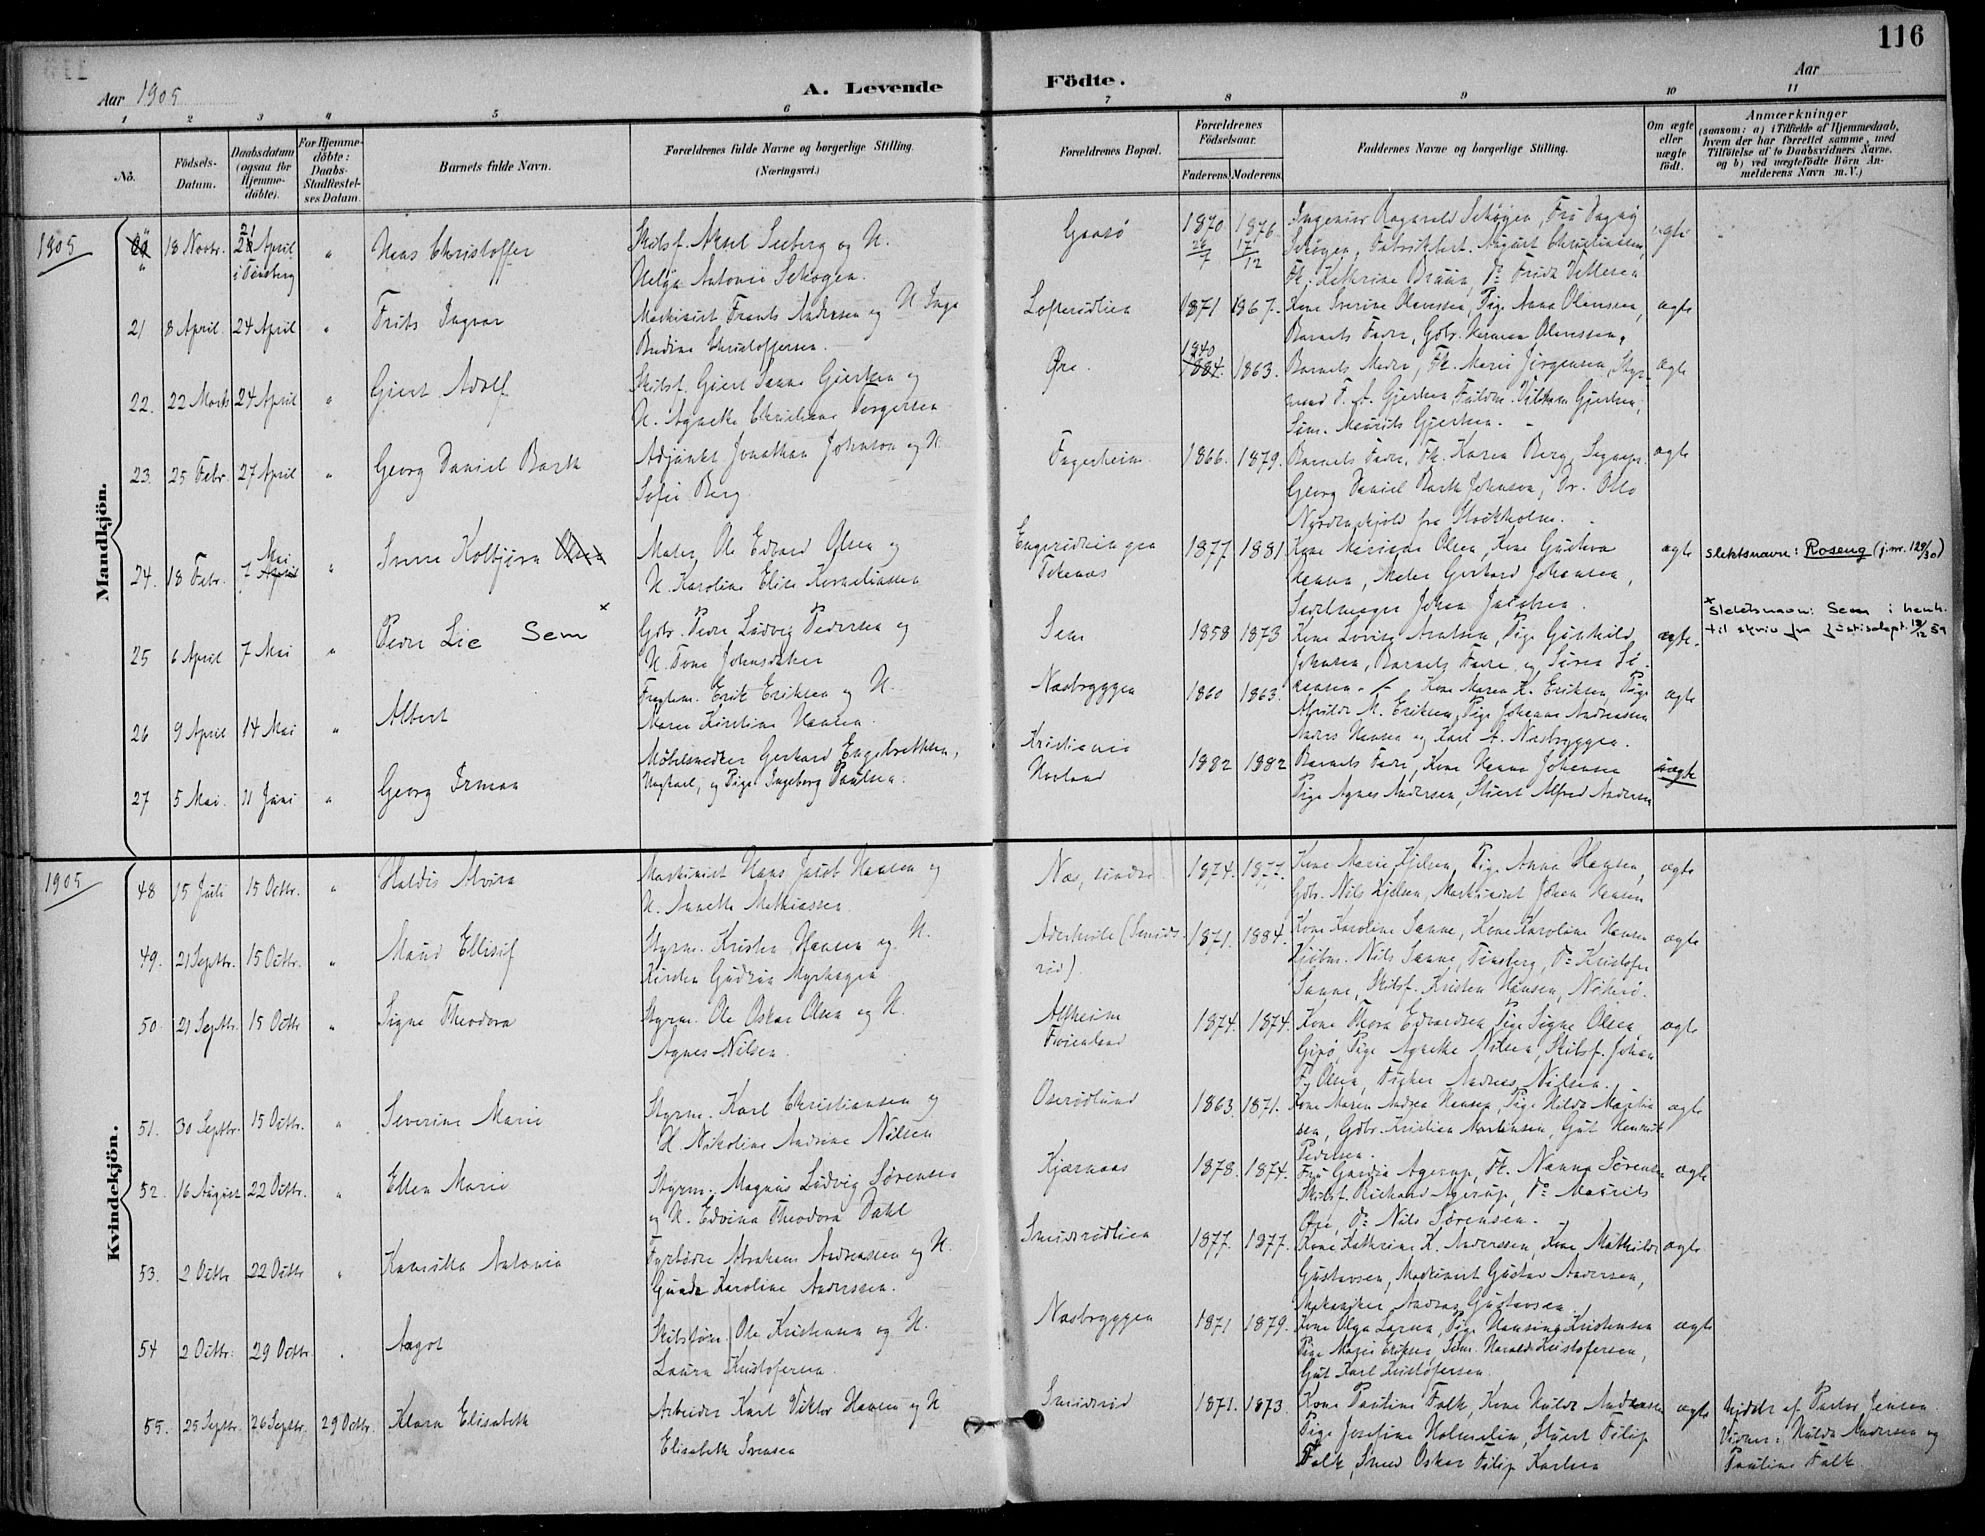 116
Aar 1905
A. Levende
Födte.
Aar
1 2 3 4 5 6 7 8 9 10 11
No.
Födsels-Datum.
Daabsdatum (ogsaa for Hjemme-döbte).
For Hjemme-döbte: Daabs-Stadfæstel-ses Datum.
Barnets fulde Navn.
Forældrenes fulde Navne og borgerlige Stilling.
(Næringsvei.)
Forældrenes Bopæl.
Forældrenes Födselsaar.
Faderens. Moderens.
Faddernes Navne og borgerlige Stilling.
Om ægte eller uægte födt.
Anmærkninger
(saasom: a) i Tilfælde af Hjemmedaab, hvem der har forrettet samme, med Tilföielse af to Daabsvidners Navne, og b) ved uægtefödte Börn An-melderens Navn m. V.)
1905
Mandkjön.
18 Novbr. 21 April i Tönsberg
Hans Christoffer
Skibsf. Aksel Seeberg og H.
Helga Antonie Schøgen.
Gaasö
1870 28/7 1876 17/12
Ingeniør Ragnvald Schøgen, Fru Dagny
Schøgen, Fabrikbest. August Christiansen,
Fk. Kathrine Bruun, Do Frida Vettesen
ægte
21 8 April 24 April
Frits Ingvar
Maskinist Frants Andersen og H. Inga
Bredine Christoffersen.
1871 1867.
Kone Severine Olavesen, Pige Anna Olavesen,
Barnets Fader, Gdbr. Herman Olavesen.
ægte
22. 22 Marts 24 April
Giert Adolf
Skibsf. Giert Sanne Gjertsen og
H. Agnethe Christiane Torgersen
Øre.
1840 1884. 1863.
Barnets Moder, Fk. Marie Jørgensen, Styr-
mand F. A. Gjertsen, Fuldm. Vilhelm Gjertsen,
Søm. Mauritz Gjertsen.
ægte
23. 25 Febr. 27 April
Georg Daniel Barth
Adjunkt Jonathan Johnson og H.
Sofie Berg
Fagerheim
1866. 1879.
Barnets Fader, Fk. Karen Berg, Sogнepr.
Georg Daniel Barth Johnson, Dr. Otto
Nordenskjöld fra Stockholm.
ægte
24. 18 Febr. 7 Mai April
Sverre Kolbjörn Olsen
Maler, Ole Edvard Olsen og
H. Karoline Elise Korneliussen
Teienæs
1877 1881
Kone Mariane Olsen, Kone Gustava
Hansen, Maler Gerhard Johansen,
Sadelmager Johan Jacobsen.
ægte
slektsnavn: Roseng (j.nr. 129/30)
25 6 April 7 Mai
Peder Lie Sem x
Gdbr. Peder Ludvig Pedersen og
H. Tone Johnsdatter
Sem
1858 1873
Kone Lovise Arntsen, Pige Gunhild
Johnsen, Barnets Fader og Søren Sö-
rensen.
ægte.
x slektsnavn: Sem i henh.
til skriv fra Justisdept. 18/12 59
26 9 April 14 Mai
Albert
Fragtem. Erik Eriksen og H.
Maren Kirstine Hansen.
Næsbryggen
1860 1863.
Kone Maren K. Eriksen, Pige
Alvilde M. Eriksen, Pige Johanne Andreassen
Anders Hansen og Karl A. Næsbryggen.
ægte
27 5 Mai. 11 Juni
Georg Irman
Möbelsnedker Gerhard Engebrethsen,
Ungkarl, og Pige Ingeborg Paulsen.
Kristiania
Husland
1882 1882
Barnets Fader, Kone Hanna Johansen
Pige Agnes Andersen, Stuert Alfred Andersen
uægte
1905
Kvindekjön.
48 15 Juli 15 Octbr.
Haldis Alvira
Maskinist Hans Jacob Hansen og
H. Annette Mathiassen
Næs, söndre
1874. 1877.
Kone Marie Kjelsen, Pige Anna Hansen,
Gdbr. Nils Kjelsen, Maskinist Johan Hansen
ægte
49. 21 Septbr. 15 Octbr.
Maud Ellisif
Styrm. Kristen Hansen og H.
Kirsten Gudrun Myrhagen
1871. 1884.
Kone Karoline Sanne, Kone Karoline Hansen
Kjöbm. Nils Sanne, Tönsberg, Do Kristofer
Sanne, Skibsf. Kristen Hansen, Nöterö.
ægte
50. 21 Septbr. 15 Octbr
Signe Theodora
Styrm. Ole Oskar Olsen og H.
Agnes Nilsen.
Alfheim
Föienland
1874. 1874.
Kone Thora Edvardsen, Pige Signe Olsen,
Gipö, Pige Agnethe Nilsen, Skibsf. Johan
F. Olsen, Fisker Andreas Nilsen.
ægte
51. 30 Septbr. 15 Octbr.
Severine Marie
Styrm. Karl Christiansen og
H. Nikoline Andrine Nilsen
Oserödlund
1863 1871.
Kone Maren Andrea Hansen, Pige Hilda Martin-
sen, Gdbr. Kristian Martinsen, Gut Henrik
Pedersen.
ægte
52. 16 August 22 Octbr.
Ellen Marie
Styrm. Magnus Ludvig Sørensen
og H. Edvina Theodora Dahl
Kjærnaas
1878. 1874.
Fru Gunda Agerup, Fk. Nanna Sørensen
Skibsf. Richard Agerup, Do Maurits
Øre, Do Nils Sørensen.
ægte
53. 2 Octbr 22 Octbr
Kamilla Antonie
Fyrböder Abraham Andreassen og H.
Gunda Karoline Anderssen.
Smidsrödlien
1877. 1877.
Kone Kathrine K. Anderssen, Kone Mathilde
Gustavsen, Maskinist Gustav Andersen,
Mekaniker Andreas Gustavsen.
ægte
54 2 Octbr. 29 Octbr
Aagot
Skibstöm. Ole Kristensen og H.
Laura Kristofersen.
Næsbryggen
1871 1879.
Kone Olga Larsen, Pige Hansine Kristensen
Pige Marie Eriksen, Söm. Harald Kristofersen,
Gut Karl Kristofersen.
ægte
55. 25 Septbr. 26 Septbr. 29 Octbr.
Klara Elisabeth
Arbeider Karl Viktor Hansen og H
Elisabeth Svensen
Smidsröd
1871. 1873.
Kone Pauline Falk, Kone Hulda Andersen
Pige Josefine Holmelin, Stuert Filip
Falk, Smed Oskar Filip Karlsen
ægte
hjdöbt af Pastor Jensen.
Vidner: Hulda Andersen og
Pauline Falk